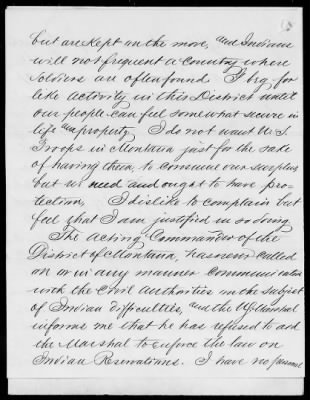 but are kept on the move, and Indians
will not frequent a country where
soldiers are often found I beg for
like activity in this District until
our people can feel somewhat secure in
life and property I do not want U.S.
Troops in Montana just for the sake
of having them, to consume our surplus
but we need and ought to have pro-
tection, I dislike to complain but
feel that I am justified in so doing
The Acting Commander of the
District of Montana, has never called
on or in any manner communicated
with the Civil Authorities on the subject
of Indian difficulties, and the U.S. Marshal
informs me that he has refused to aid
the Marshal to enforce the law on
Indian Reservations. I have no personal